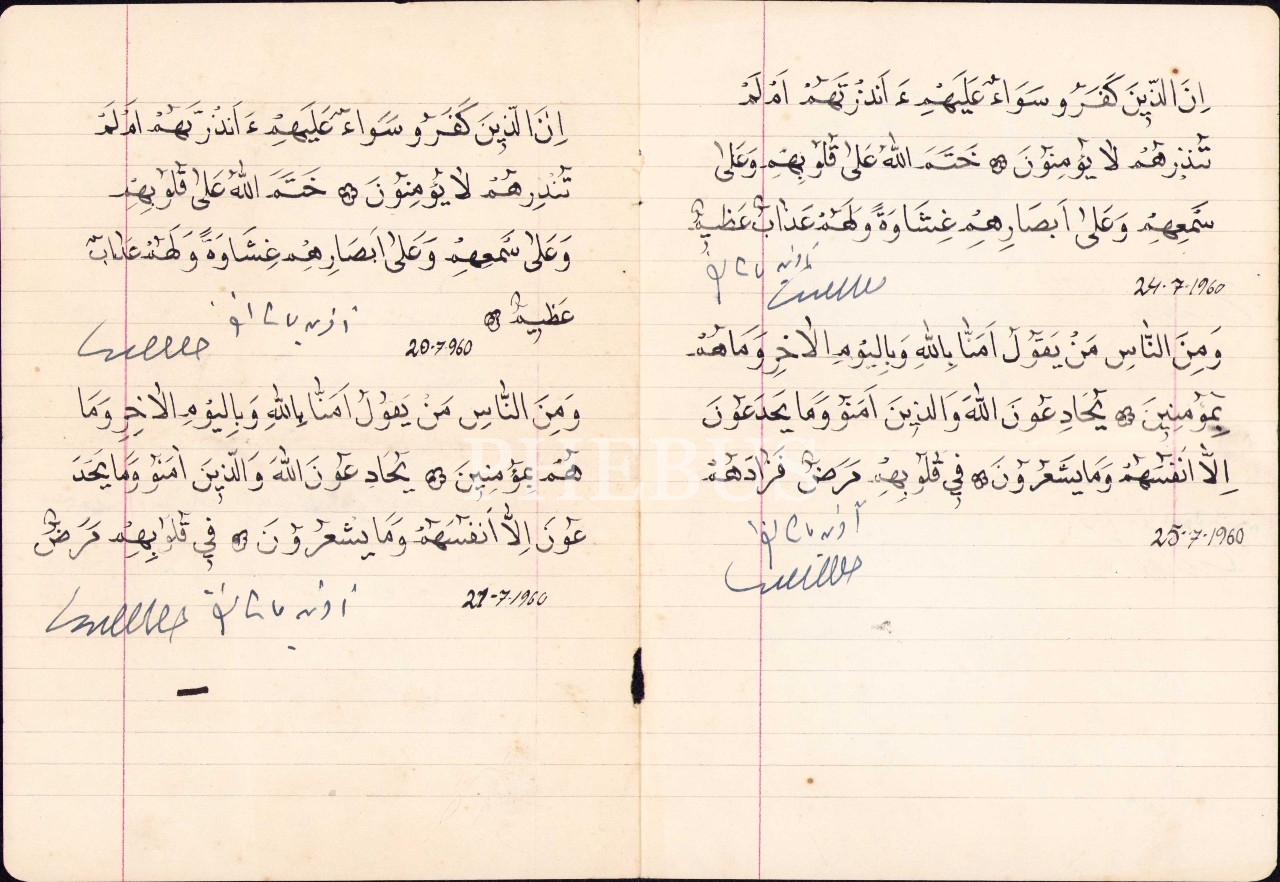 اِنَ الذّينَ كَفَرَوُ سَوَاءٌ عَلَيهِمُ ءَ اَنذُرتَهَمُ اَمُ لَمُ
تَنذِرهَمُ لا يؤُمِنؤنَ خَتَمَ اللهُ عَلىٰ قلُوبِهِمُ وَعَلىٰ
سَمعِهِمُ وَعَلىٰ اَبصَارِهِمُ غِشَاوَةً وَلَهَمُ عَذابٌ عَظيمٌ
24-7-1960
وَمِنَ النّاسِ مَنُ يَقوُلَ اَمَنّا بِاللهِ وَبِاليوُمِ الاٰخِرِ وَمَاهَمُ
بِموُمِنِينَ يُحَادِعوُنَ اللهَ وَالذِينَ اٰمَنوُ وَمَا يَحدَعوُنَ
اِلّا اَنفسَهَمُ وَمَا يشَعرُوُنَ في قلوُبِهِمُ مَرَضٌ فَزَادَهَمُ
25-7-1960
اِنَ الّذينَ كَفَرَوُ سَوَاءٌ عَلَيهِمُ ءَ اَنذُرتَهَمُ اَمُ لَمُ
تَنُذِرهَمُ لا يؤَمِنوُنَ خَتَمَ اللهُ عَلىٰ قلوُبِهِمُ
وَعَلىٰ سَمعِهِمُ وَعَلىٰ اَبصَارِهِمُ غِشَاوَةً وَلَهَمُ عَذابٌ
عَظيمٌ
20-7-960
وَمِنَ النّاسِ مَنُ يَقوُلَ اٰمَنّا بِاللهِ وَبِاليوُمِ الاٰخِرِ وَمَا
هَمُ بِموُمِنِينَ يُحَادِ عوُنَ اللهَ وَالّذِينَ اٰمَنوُ وَمَا يَحَدَ
عوُنَ اِلّا اَنفسَهَمُ وَمَا يشعرُوُنَ في قلوُبِهِمُ مَرَضٌ
21-7-1960
PHEBUS